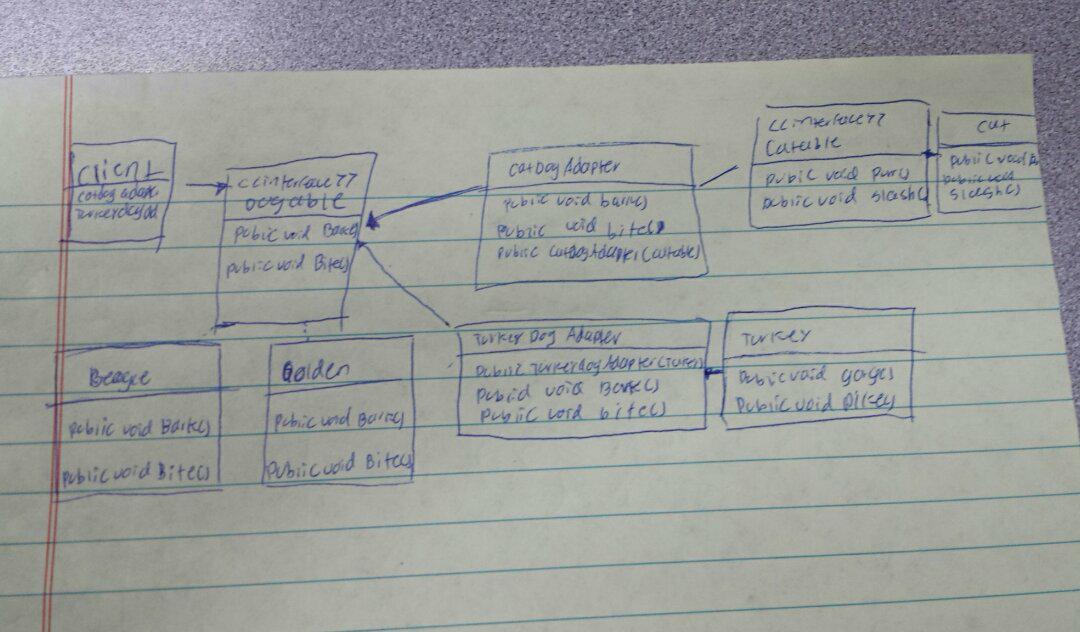 Client
catdog adapter
<<interface>>
Dogable
public void Bark()
public void Bite()
CatDog Adapter
public void bark()
public void bite()
public CatdogAdapter(Catable)
<<interface>>
Catable
public void purr()
public void slash()
Cat
public void
public void
slash()
Beagle
public void Bark()
public void Bite()
Golden
public void Bark()
public void Bite()
Turkey Dog Adapter
public TurkeydogAdapter(Turkey)
public void Bark()
public void bite()
Turkey
public void
public void